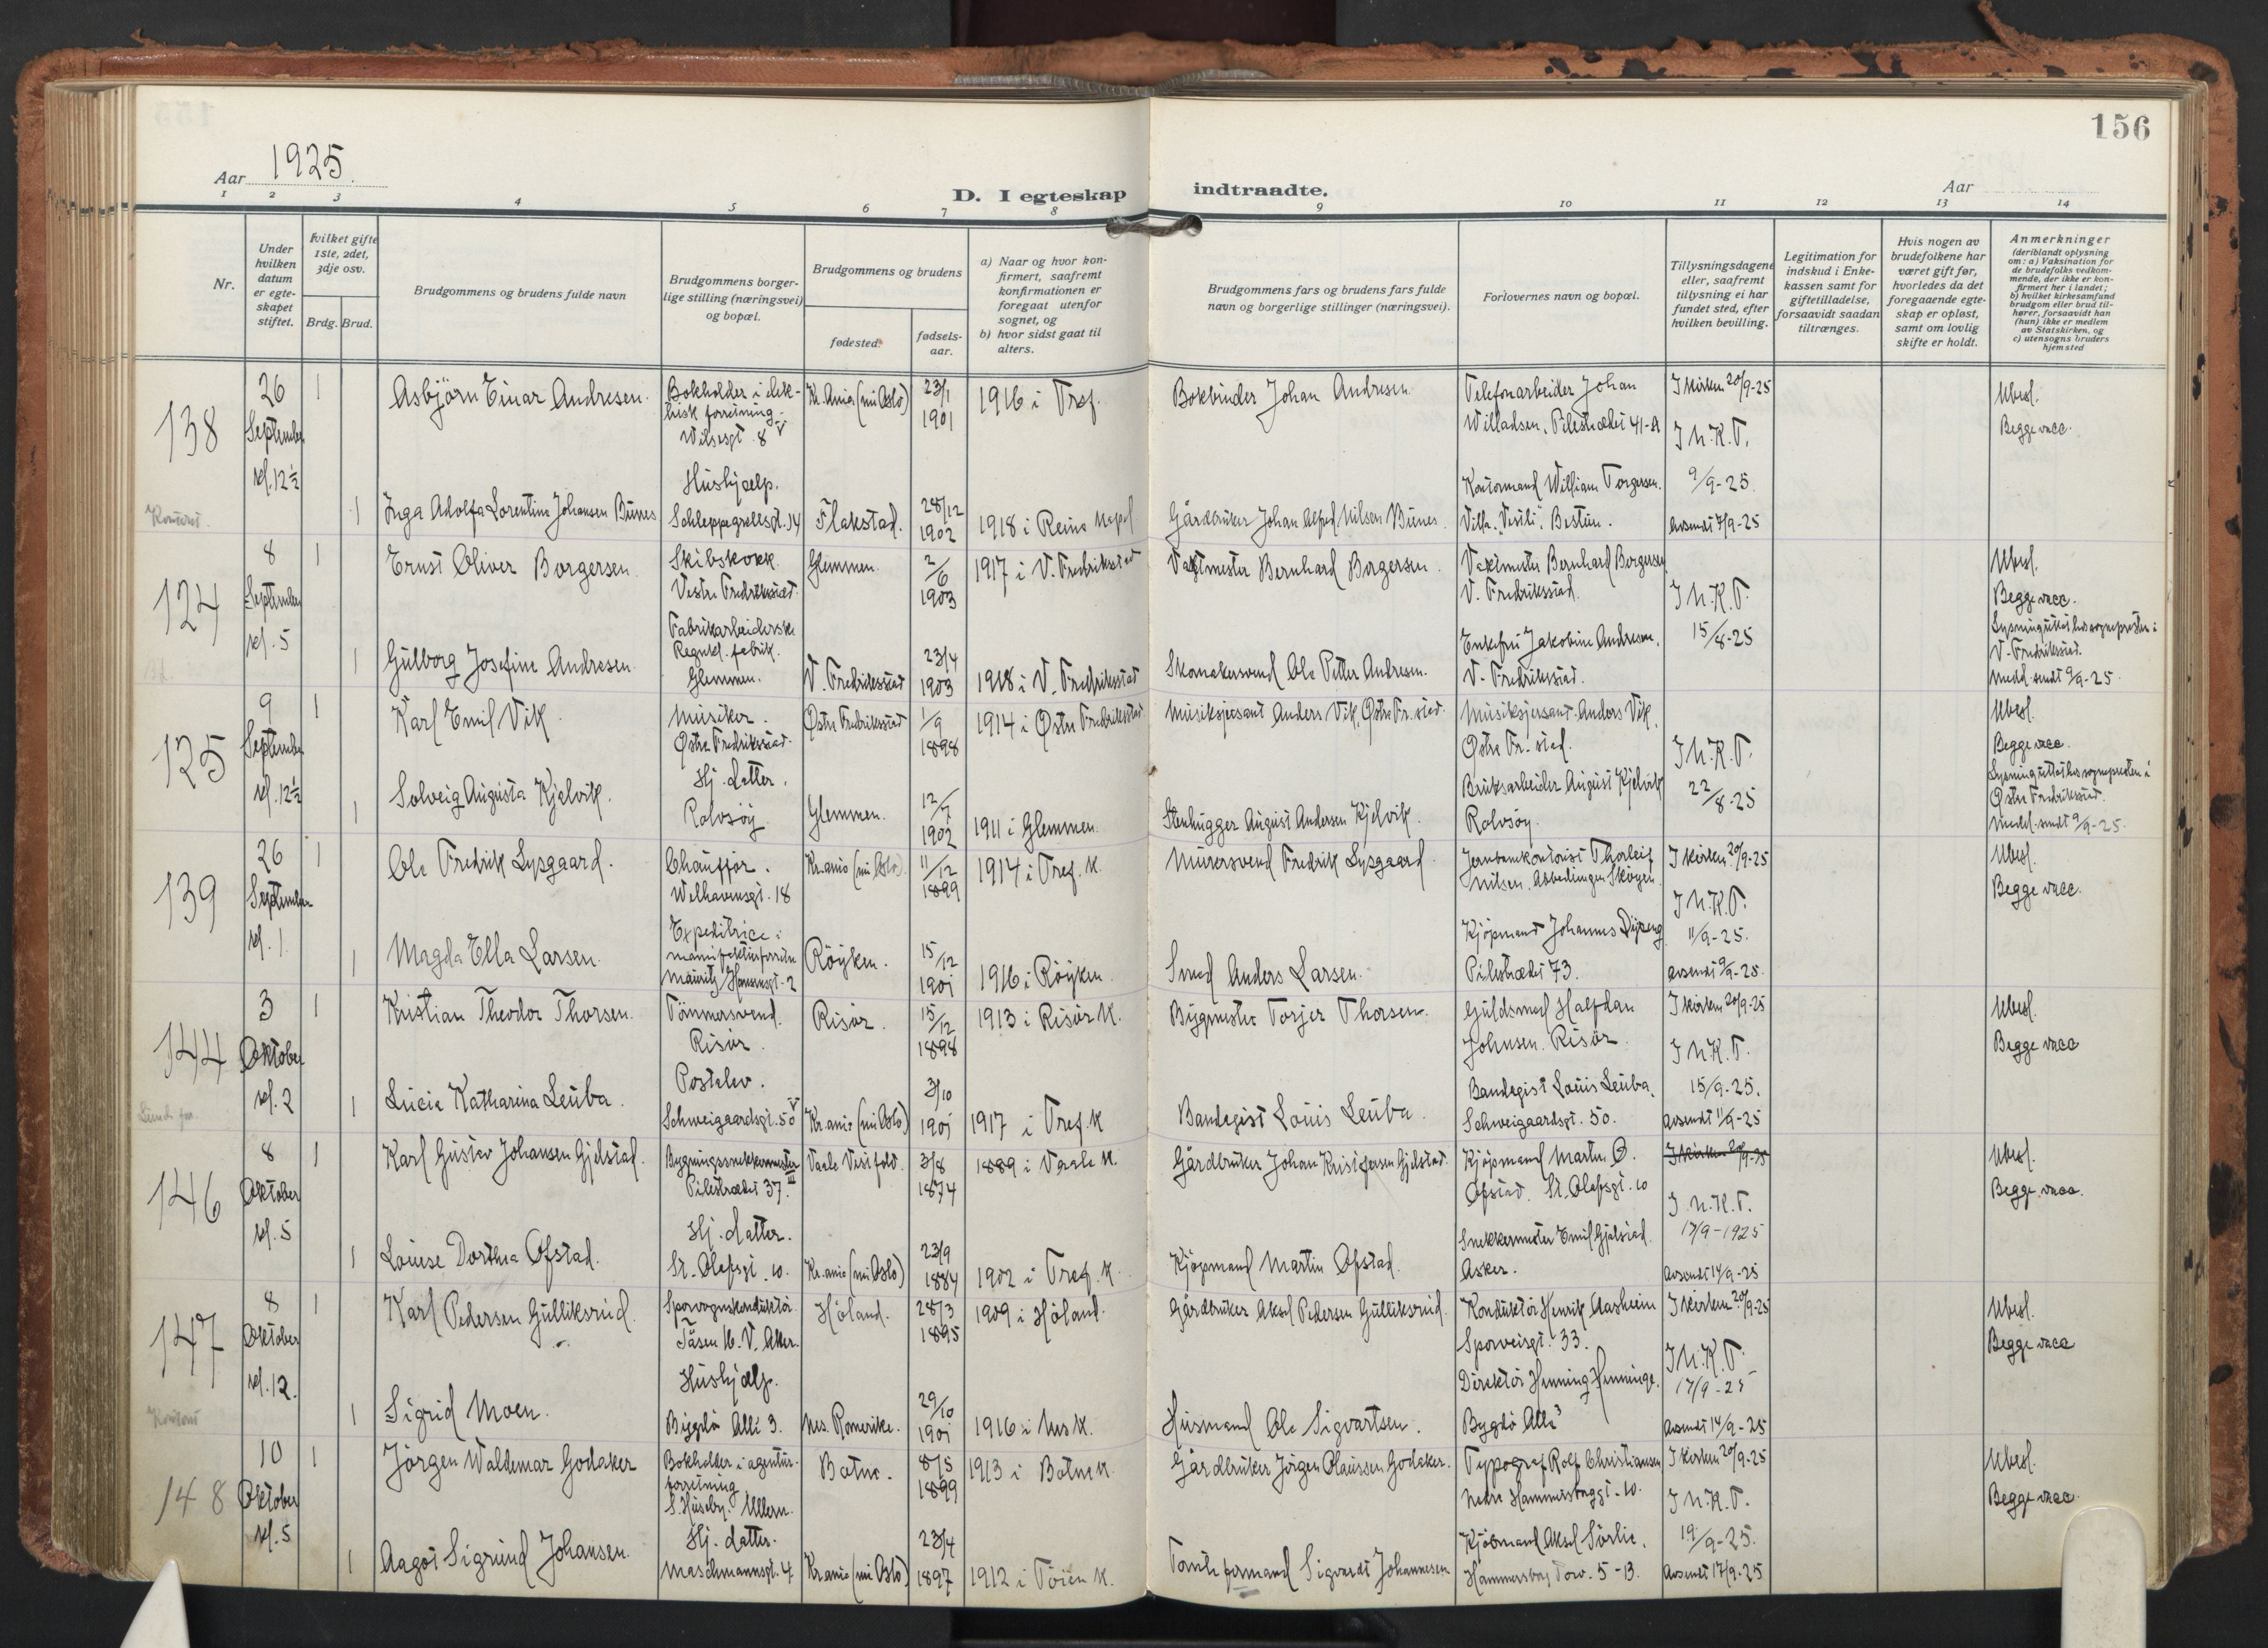 156
Aar 1925.
D. I egteskap indtraadte.
Aar
1 2 3 4 5 6 7 8 9 10 11 12 13 14
Nr.
Under hvilken datum er egteskapet stiftet.
hvilket gifte 1ste, 2det, 3dje osv.
Brdg. Brud.
Brudgommens og brudens fulde navn
Brudgommens borgerlige stilling (næringsvei) og bopæl.
Brudgommens og brudens
fødested.
fødselsaar.
a) Naar og hvor konfirmert, saafremt konfirmationen er foregaat utenfor sognet, og
b) hvor sidst gaat til alters.
Brudgommens fars og brudens fars fulde navn og borgerlige stillinger (næringsvei).
Forlovernes navn og bopæl.
Tillysningsdagene eller, saafremt tillysning ei har fundet sted, efter hvilken bevilling.
Legitimation for indskud i Enkekassen samt for giftetilladelse, forsaavidt saadan tiltrænges.
Hvis nogen av brudefolkene har været gift før, hvorledes da det foregaaende egteskap er opløst, samt om lovlig skifte er holdt.
Anmerkninger
(deriblandt oplysning om: a) Vaksination for de brudefolks vedkommende, der ikke er konfirmert her i landet;
b) hvilket kirkesamfund brudgom eller brud tilhører, forsaavidt han (hun) ikke er medlem av Statskirken, og
c) utensogns bruders hjemsted
138 26 September kl. 12½
1 Asbjörn Einar Andresen. Bokholder i elektrisk forretning. Wilsesgt. 8 V Kr.ania (nu Oslo) 23/1 1901 1916 i Tref. Bokbinder Johan Andresen. Telefonarbeider Johan Willadsen, Pilestrædet 41-A I kirken 20/9-25 I N.K.T. Ubesl. Begge vacc.
1 Inga Adolfa Lorentine Johansen Bunes Hushjælp. Schleppegrellsgt. 14 Flakstad. 28/12 1902 1918 i Reine kapel Gårdbruker Johan Alfred Nilsen Bunes. Kontormand William Torgersen. Villa "Vestli", Bestun. 9/9-25 avsendt 7/9-25
124 8 September kl. 5
1 Ernst Oliver Borgersen. Skibskokk. Vestre Fredrikstad. Glemmen. 2/6 1903 1917 i V. Fredrikstad Vaktmester Bernhard Borgersen. Vaktmester Bernhard Borgersen V. Fredriksstad. I N.K.T. 15/8-25 Ubesl. Begge vacc. Lysning uttat hos sognepresten i V. Fredriksstad. medd. sendt 9/9-25.
1 Gulborg Josefine Andresen. Fabrikarbeiderske Glemmen. V. Fredriksstad 23/4 1903 1918 i V. Fredriksstad Skomakersvend Ole Petter Andresen. Enkefru Jakobine Andresen. V. Fredriksstad.
125 9 September kl. 12½
1 Karl Emil Vik. Musiker. Østre Fredriksstad. Østre Fredriksstad 1/9 1898 1914 i Østre Fredriksstad Musiksjersant Anders Vik, Østre Fr.stad. Musiksjersant Anders Vik, Østre Fr.stad. I N.K.T. 22/8-25 Ubesl. Begge vacc. Lysning uttat hos sognepresten i Østre Fredriksstad. medd. sendt 9/9-25.
1 Solveig Augusta Kjelvik. Hj. datter. Rolvsöy. Glemmen. 12/7 1902 1911 i Glemmen. Stenhugger August Andersen Kjelvik. Bruksarbeider August Kjelvik Rolvsöy.
139 26 September kl. 1.
1 Ole Fredrik Lysgaard. Chauffør. Welhavensgt. 18 Kr.ania (nu Oslo). 11/12 1899 1914 i Tref. k. Murersvend Fredrik Lysgaard Jernbanekontorist Thorleif Nilsen, Abbediengen Skøyen. I kirken 20/9-25 I N.K.T. Ubesl. Begge vacc.
1 Magda Ella Larsen. Expeditrice i manufakturforretn. Mauritz Hansensgt. 2 Röyken. 15/12 1901 1916 i Röyken. Smed Anders Larsen. Kjöpmand Johannes Dyreng Pilestrædet 73. 11/9-25. avsendt 9/9-25.
144 3 Oktober kl. 2
1 Kristian Theodor Thorsen. Tömmersvend. Risör. Risör. 15/12 1898 1913 i Risör k. Bygmester Torjer Thorsen. Guldsmed Halfdan Johnsen. Risör. I kirken 20/9-25 I N.K.T. Ubesl. Begge vacc
1 Lucie Katharina Leuba. Postelev. Schweigaardsgt. 50 V Kr.ania (nu Oslo) 3/10 1901 1917 i Tref. k Bandagist Louis Leuba. Bandagist Louis Leuba. Schweigaardsgt. 50. 15/9-25. avsendt 11/9-25
146 8 Oktober kl. 5
1 Karl Gustav Johansen Gjelstad. Bygningssnekkermester Pilestrædet 37. III Vaale Vestfold. 3/8 1874 1889 i Vaale k. Gårdbruker Johan Kristfersen Gjelstad. Kjöpmand Martin O. Ofstad. St. Olafsgt. 10 I kirken 20/9-25 I N.K.T. Ubesl. Begge vacc.
1 Louise Dorthea Ofstad. Hj. datter. St. Olafsgt. 10. Kr.ania (nu Oslo) 23/9 1884 1902 i Tref. k. Kjöpmand Martin Ofstad. Snekkermester Emil Gjelstad. Asker. 17/9-1925 avsendt 14/9-25
147 8 Oktober kl. 12.
1 Karl Pedersen Gulliksrud. Sporvognskonduktör. Tåsen H. V. Aker. Höland. 28/3 1895 1909 i Höland. Gårdbruker Aksel Pedersen Gulliksrud. Konduktör Henrik Aasheim Sporveisgt. 33. I kirken 20/9-25 I N.K.T. Ubesl. Begge vacc
1 Sigrid Moen. Hushjælp. Bygdö Allé 3. Nes. Romerike. 29/10 1901 1916 i Nes k. Husmand Ole Sigvartsen. Direktör Henning Henninge. Bygdö Allé 3 17/9-25 avsendt 14/9-25
148 10 Oktober kl. 5
1 Jörgen Waldemar Godaker Bokholder i agentur-forretning S. Huseby. Ullern. Botne. 8/5 1899 1913 i Botne k. Gårdbruker Jörgen Olaussen Godaker. Typograf Rolf Christiansen Nedre Hammersborggt. 10. I kirken 20/9-25 I N.K.T. Ubesl. Begge vacc.
1 Aagot Sigrund Johansen. Hj. datter. Maschmannsgt. 4. Kr.ania (nu Oslo) 23/4 1897 1912 i Töien k. Tomteformand Sigvardt Johannesen Kjöbmand Aksel Sörlie. Hammersborg Torv. 5-13. 19/9-25. avsendt 17/9-25